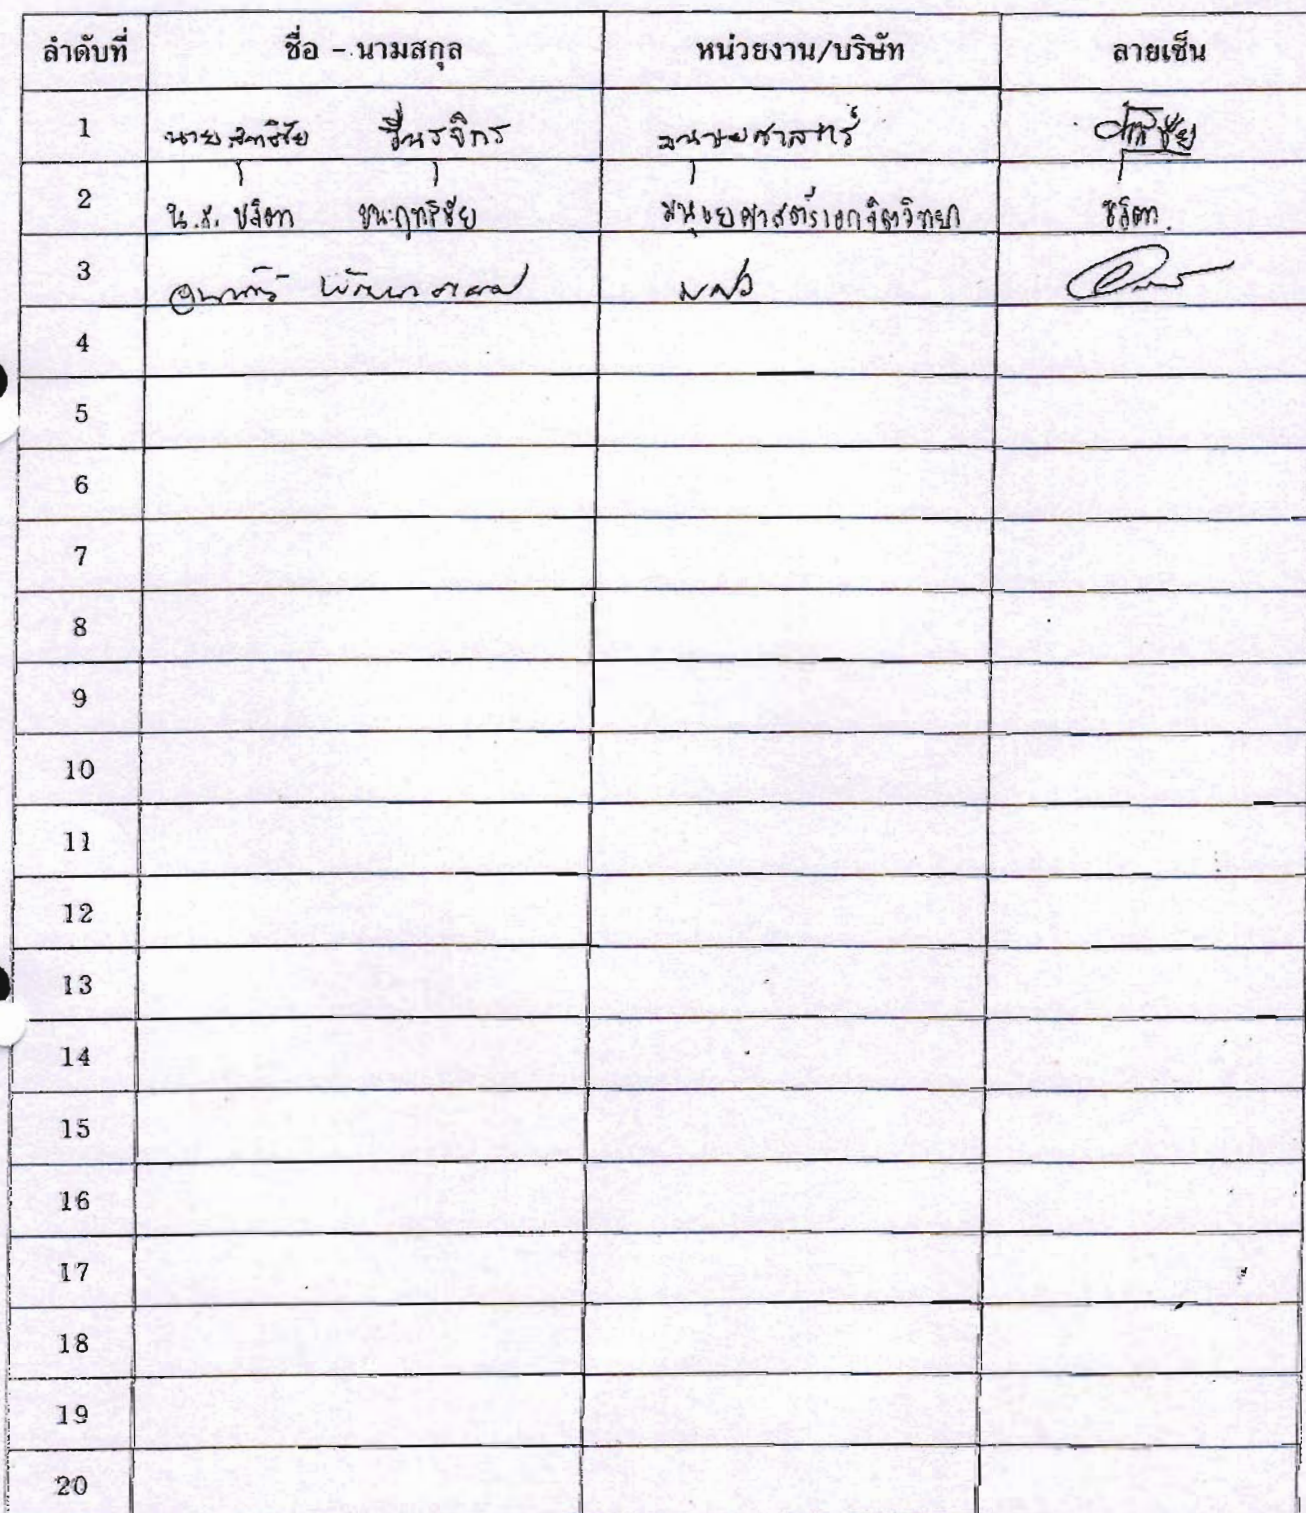 ลำดับที่ ชื่อ - นามสกุล หน่วยงาน/บริษัท ลายเซ็น
1 นายสุทธิชัย มนุษยศาสตร์ สุทธิชัย
2 น.ส. ชลิตา มนุษยศาสตร์เอกจิตวิทยา ชลิตา
3 มศว
4
5
6
7
8
9
10
11
12
13
14
15
16
17
18
19
20